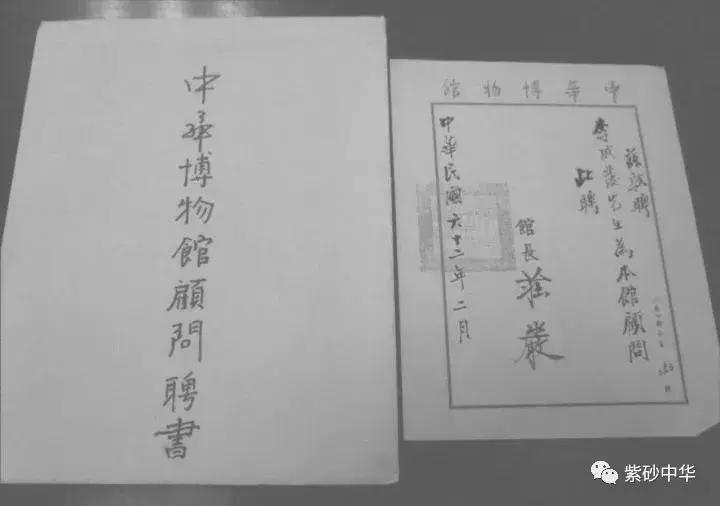 中華博物館顧問聘書
中華博物館
茲敦聘
李成發先生為本館顧問
此聘
館長 莊嚴
中華民國六十二年二月
紫砂中华